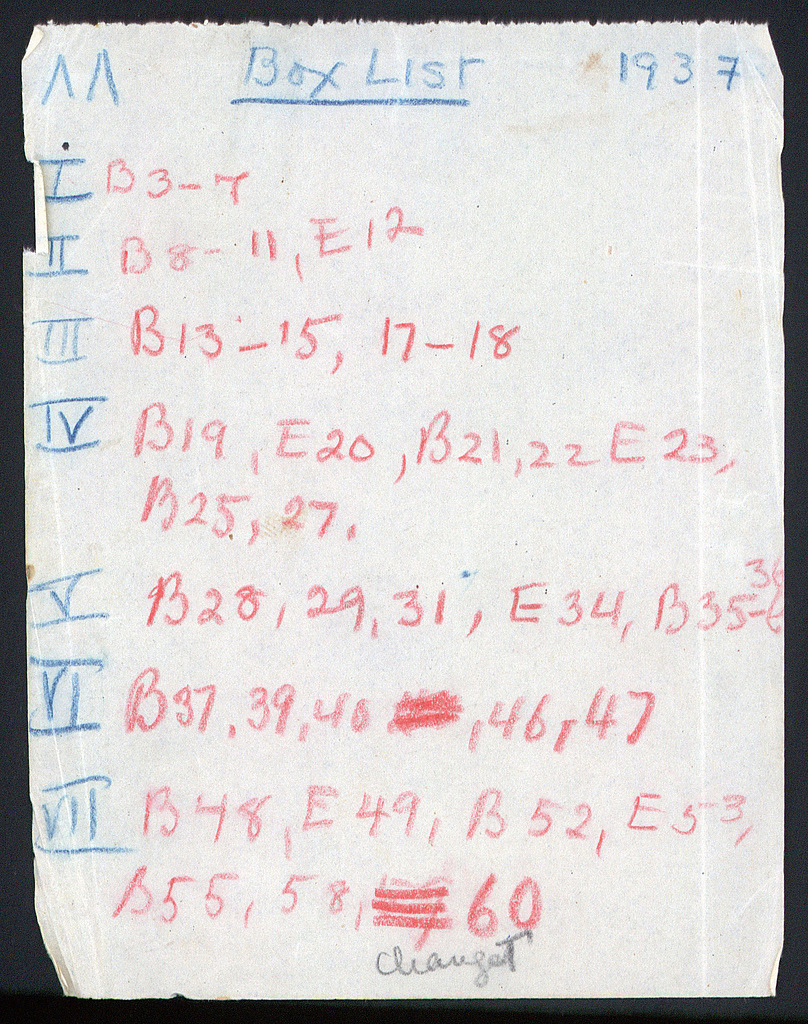 ΛΛ Box List 1937
I B3-7
II B8-11, E12
III B13-15, 17-18
IV B19, E20, B21, 22 E23,
B25, 27.
V B28, 29, 31, E34, B35-36
VI B37, 39, 40, 46, 47
VII B48, E49, B52, E53,
B55, 58, 60